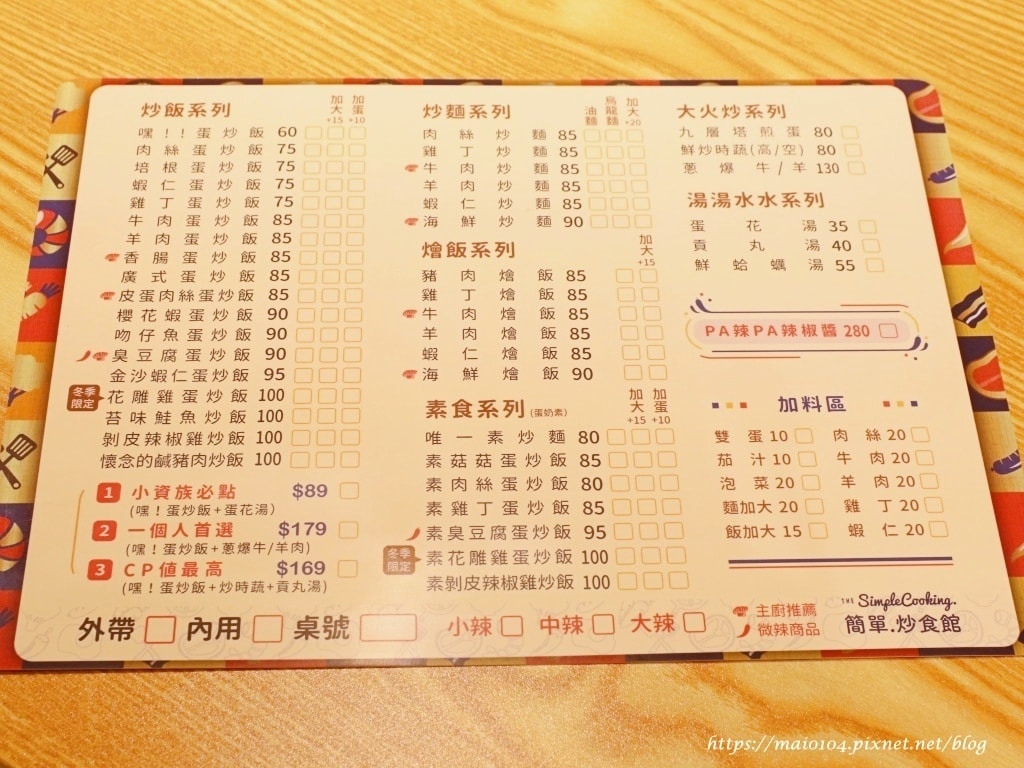 炒飯系列 加大+15 加蛋+10
嘿!!蛋炒飯 60
肉絲蛋炒飯 75
培根蛋炒飯 75
蝦仁蛋炒飯 75
雞丁蛋炒飯 75
牛肉蛋炒飯 85
羊肉蛋炒飯 85
香腸蛋炒飯 85
廣式蛋炒飯 85
皮蛋肉絲蛋炒飯 85
櫻花蝦蛋炒飯 90
吻仔魚蛋炒飯 90
臭豆腐蛋炒飯 90
金沙蝦仁蛋炒飯 95
冬季限定 花雕雞蛋炒飯 100
苔味鮭魚炒飯 100
剝皮辣椒雞炒飯 100
懷念的鹹豬肉炒飯 100
1 小資族必點 $89
(嘿!蛋炒飯+蛋花湯)
2 一個人首選 $179
(嘿!蛋炒飯+蔥爆牛/羊肉)
3 CP值最高 $169
(嘿!蛋炒飯+炒時蔬+貢丸湯)
炒麵系列 油麵 烏龍麵 加大+20
肉絲炒麵 85
雞丁炒麵 85
牛肉炒麵 85
羊肉炒麵 85
蝦仁炒麵 85
海鮮炒麵 90
燴飯系列 加大+15
豬肉燴飯 85
雞丁燴飯 85
牛肉燴飯 85
羊肉燴飯 85
蝦仁燴飯 85
海鮮燴飯 90
素食系列(蛋奶素) 加大+15 加蛋+10
唯一素炒麵 80
素菇菇蛋炒飯 85
素肉絲蛋炒飯 80
素雞丁蛋炒飯 85
素臭豆腐蛋炒飯 95
冬季限定 素花雕雞蛋炒飯 100
素剝皮辣椒雞炒飯 100
大火炒系列
九層塔煎蛋 80
鮮炒時蔬(高/空) 80
蔥爆牛/羊 130
湯湯水水系列
蛋花湯 35
貢丸湯 40
鮮蛤蠣湯 55
PA辣PA辣椒醬 280
加料區
雙蛋 10 肉絲 20
茄汁 10 牛肉 20
泡菜 20 羊肉 20
麵加大 20 雞丁 20
飯加大 15 蝦仁 20
外帶 內用 桌號 小辣 中辣 大辣
主廚推薦
微辣商品
THE SimpleCooking.
簡單.炒食館
https://maio104.pixnet.net/blog